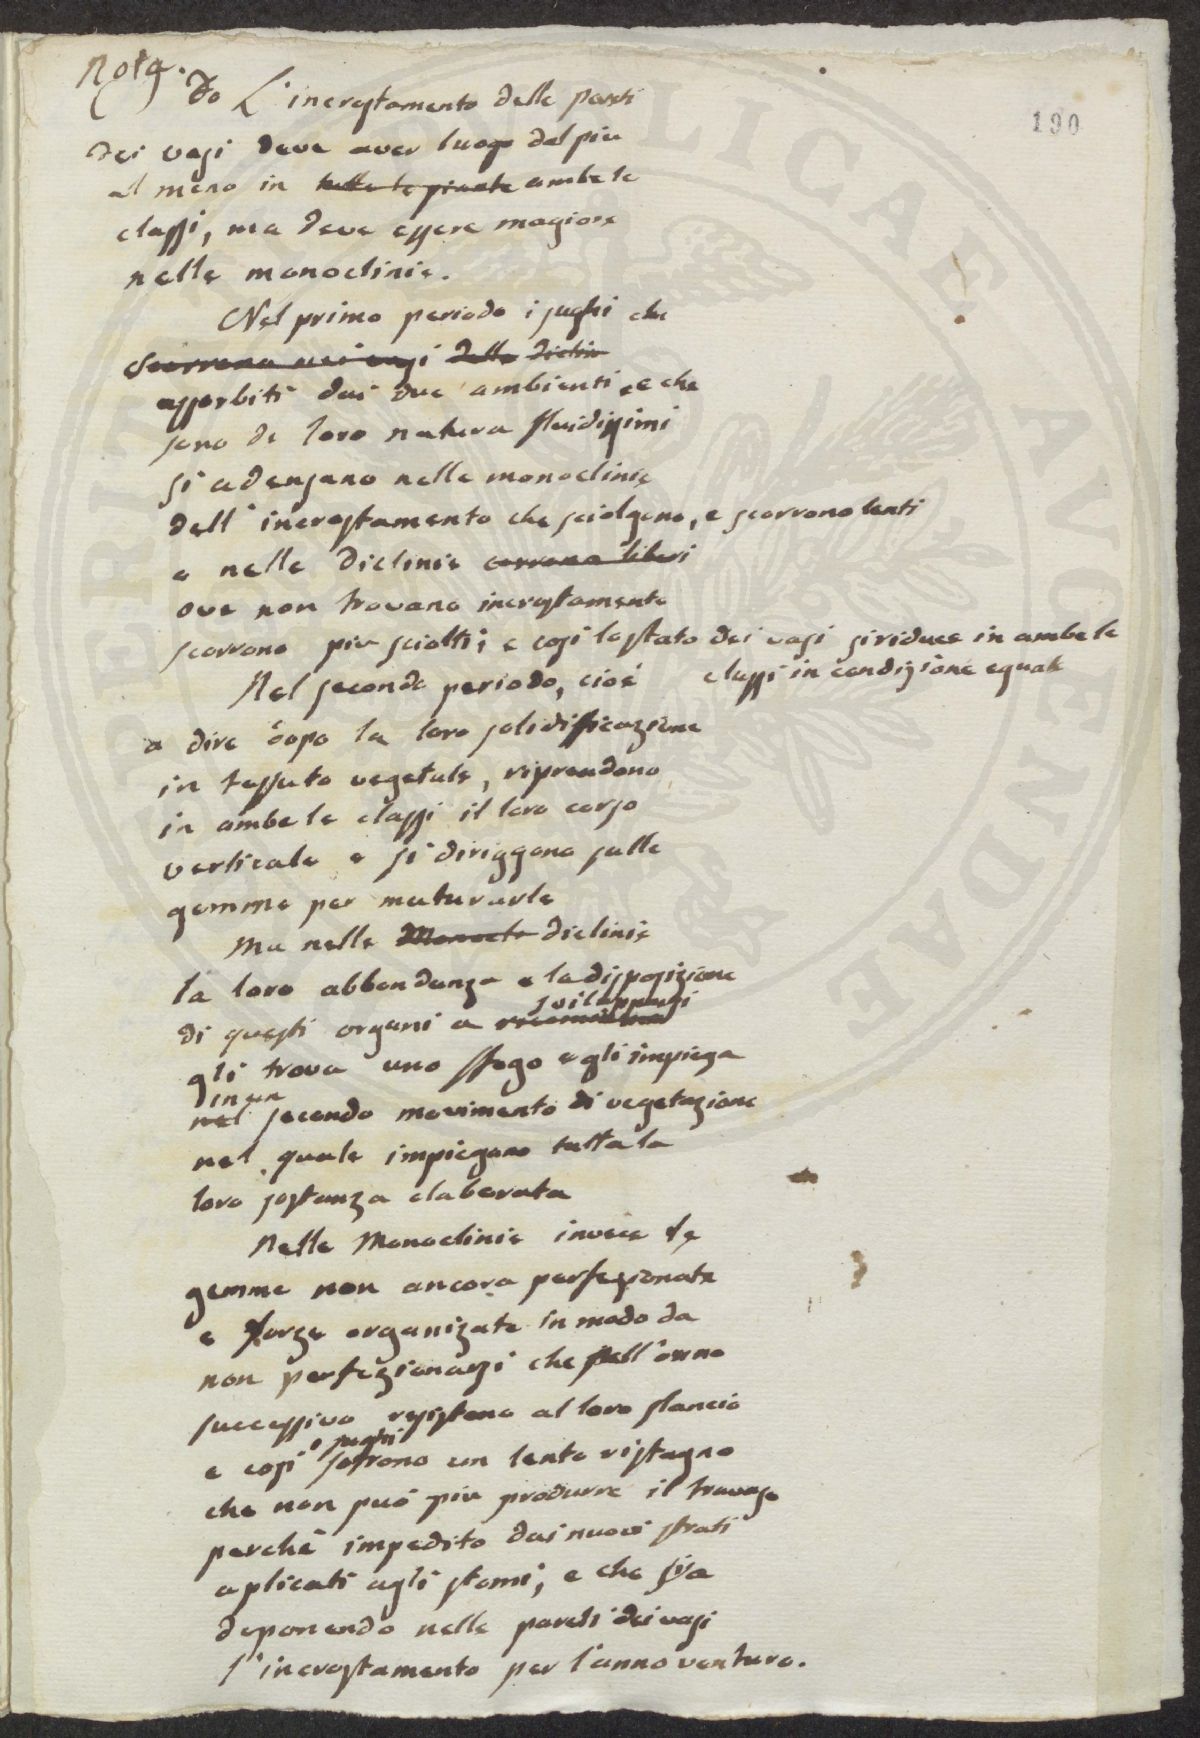 Nota.
190
Do L'incrostamento delle pareti
dei vasi deve aver luogo dal piu
al meno in tutte le piante ambe le
classi, ma deve essere magiore
nelle monoclinie.
Nel primo periodo i sughi che
scorrono nei vasi delle diclin
assorbiti dai due ambienti, e che
sono di loro natura fluidissimi
si adensano nelle monoclinie
dall'incrostamento che sciolgono, e scorrono lenti
e nelle diclinie corrono liberi
ove non trovano incrostamento
scorrono piu sciolti; e cosi lo stato dei vasi si riduce in ambe le
classi in condizione equale
Nel secondo periodo, cioé
a dire dopo la loro solidifficazione
in tessuto vegetale, riprendono
in ambe le classi il loro corso
verticale e si diriggono sulle
gemme per maturarle
Ma nelle Monocli diclinie
la loro abbondanza e la disposizione
di questi organi a svilupparsi
gli trova uno sfogo e gli impiega
nel in un secondo movimento di vegetazione
nel quale impiegano tutta la
loro sostanza elaborata
Nelle Monoclinie invece le
gemme non ancora perfezionate
e forze organizate in modo da
non perfezionarsi che nell'anno
successivo resistono al loro slancio
e cosi i sughi sofrono un lento ristagno
che non puó piu produrre il travaso
perchè impedito dai nuovi strati
aplicati agli stami, e che si va
deponendo nelle pareti dei vasi
l'incrostamento per l'anno venturo.
PERITI
PVBLICAE AVGENDAE